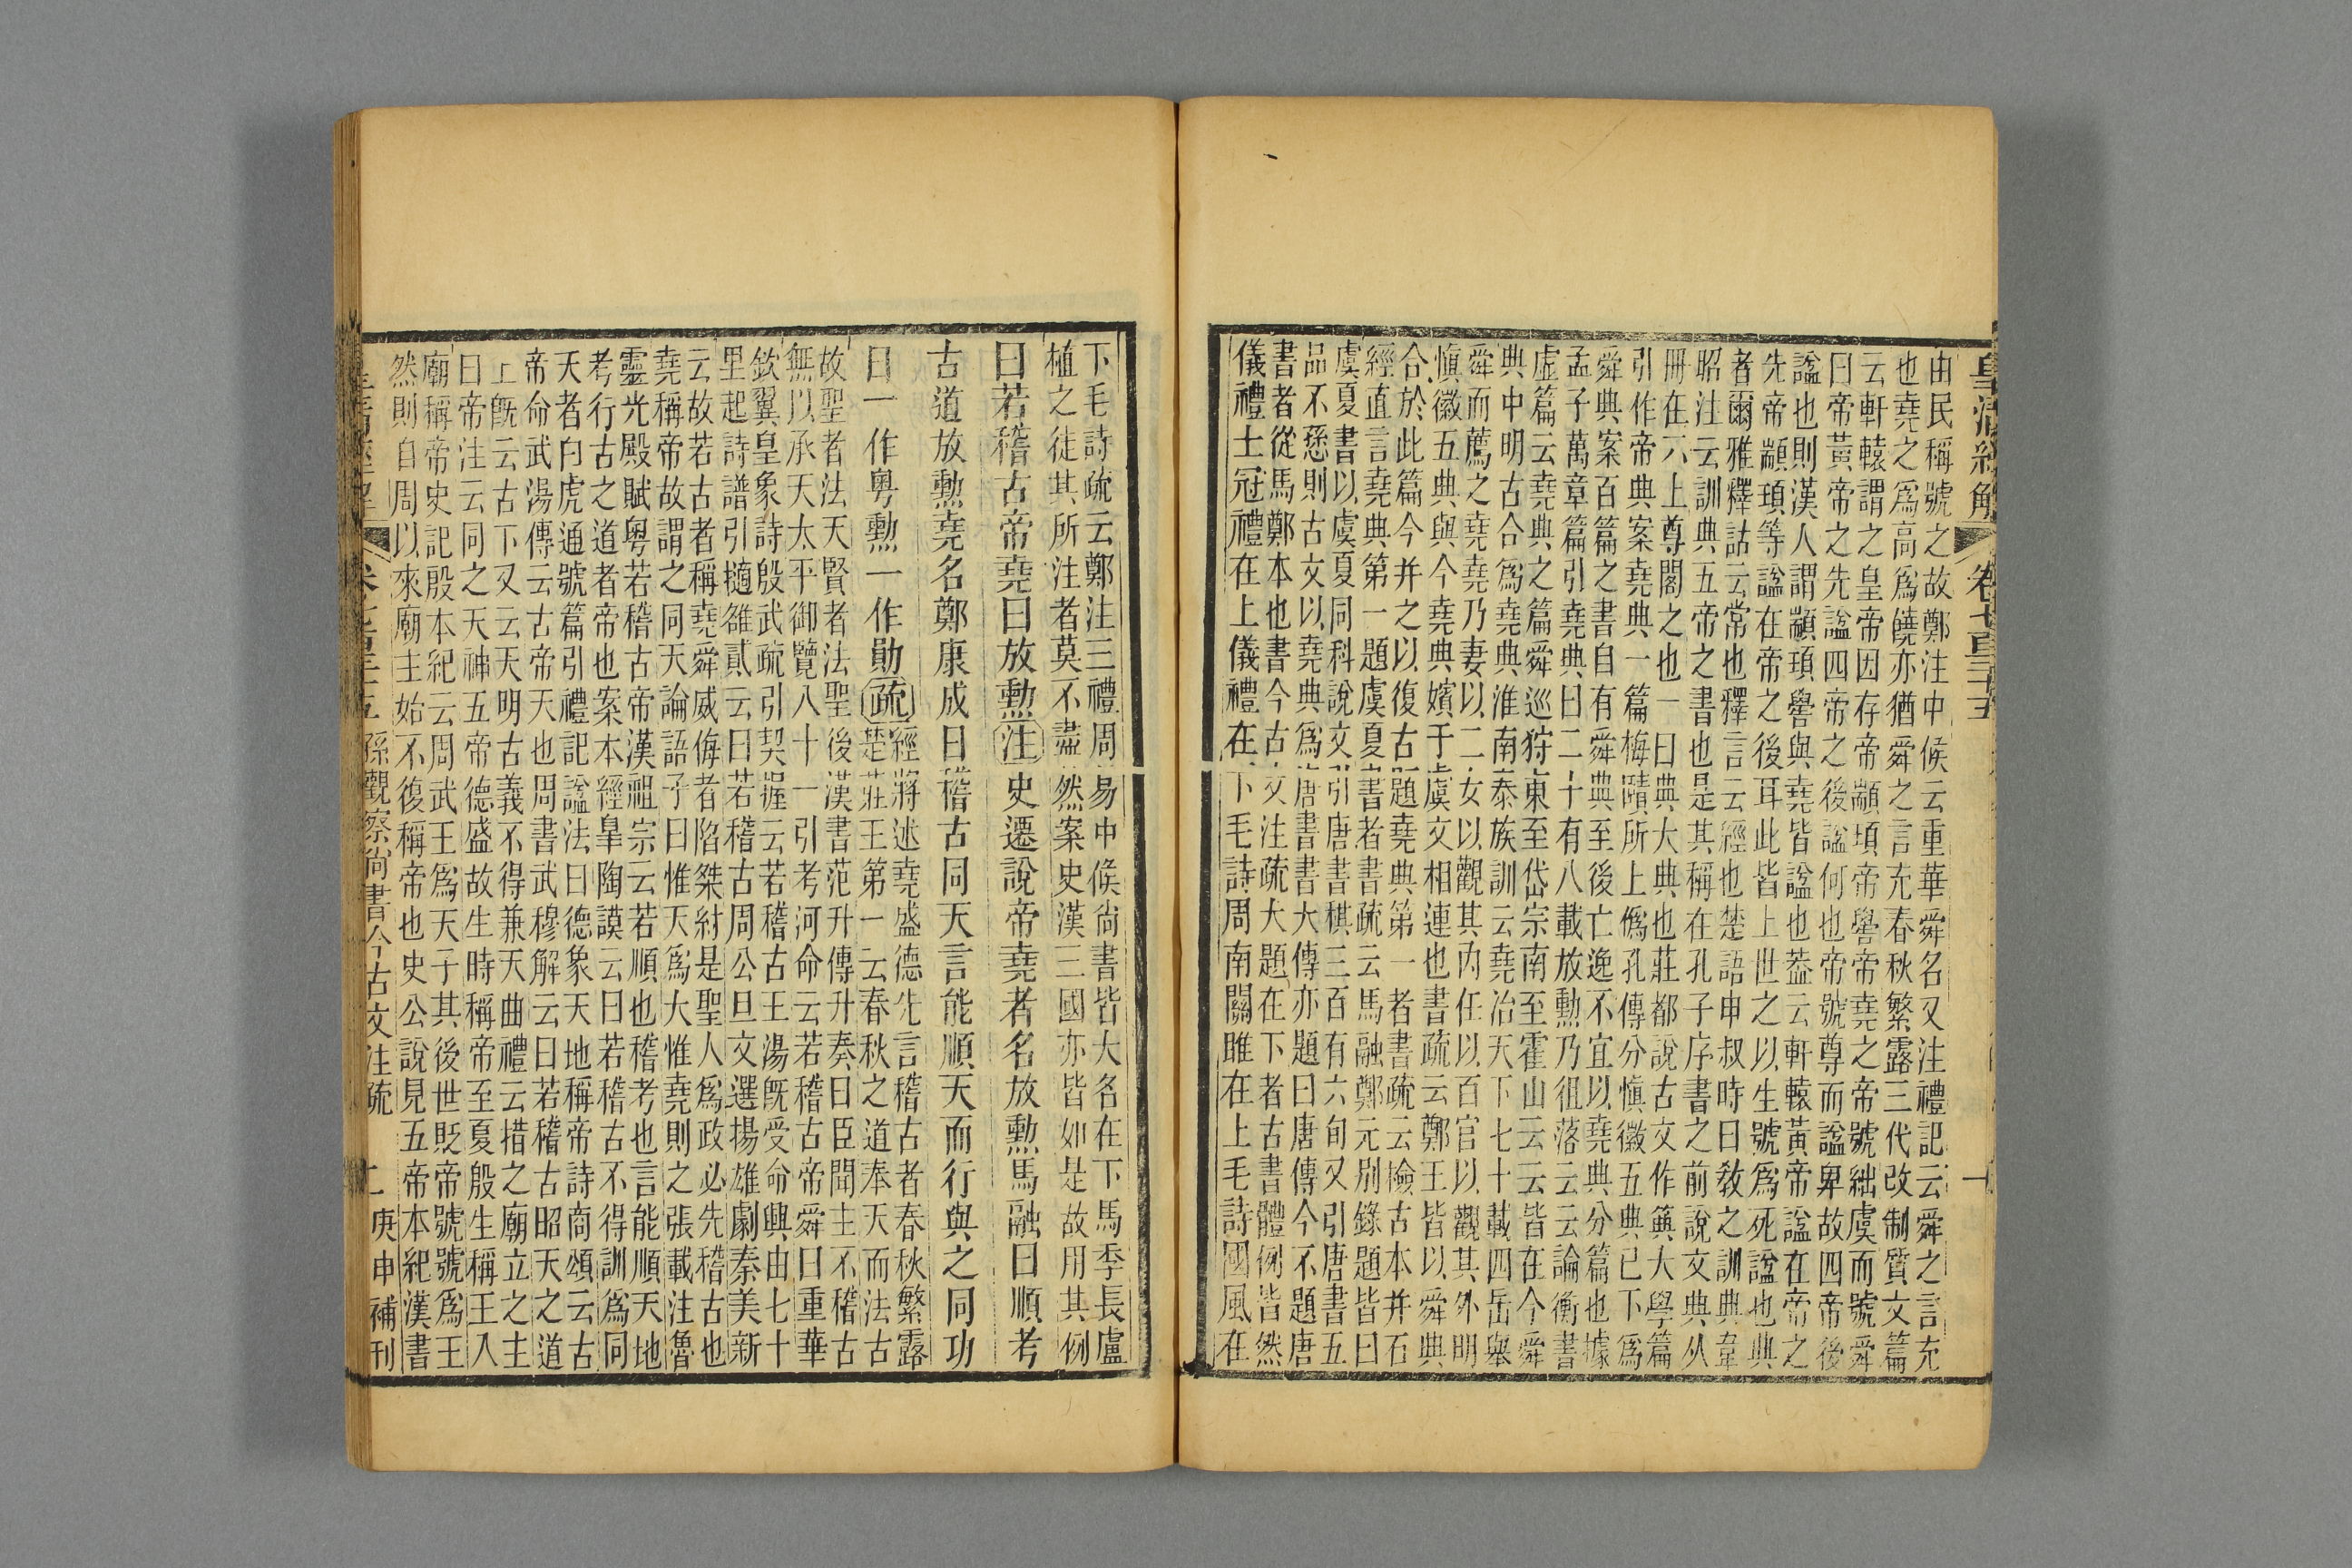 皇清經解 卷七百三十五
由民稱號之故鄭注中候云重華舜名又注禮記云舜之言充
也堯之爲高爲饒亦猶舜之言充春秋繁露三代改制質文篇
云軒轅謂之皇帝因存帝顓頊帝嚳帝堯之帝號絀虞而號舜
曰帝黃帝之先謚四帝之後謚何也帝號尊而謚卑故四帝後
謚也則漢人謂顓頊嚳與堯皆謚也葢云軒轅黃帝謚在帝之
先帝顓頊等謚在帝之後耳此皆上世之以生號爲死謚也典
者爾雅釋詁云常也釋言云經也楚語申叔時曰教之訓典韋
昭注云訓典五帝之書也是其稱在孔子序書之前說文典从
冊在丌上尊閣之也一曰典大典也莊都說古文作籅大學篇
引作帝典案堯典一篇梅賾所上僞孔傳分愼徽五典已下爲
舜典案百篇之書自有舜典至後亡逸不宜以堯典分篇也據
孟子萬章篇引堯典曰二十有八載放勳乃徂落云云論衡書
虛篇云堯典之篇舜巡狩東至岱宗南至霍山云云皆在今舜
典中明古合爲堯典淮南泰族訓云堯治天下七十載四岳舉
舜而薦之堯堯乃妻以二女以觀其內任以百官以觀其外明
愼徽五典與今堯典嬪于虞文相連也書疏云鄭王皆以舜典
合於此篇今并之以復古題堯典第一者書疏云檢古本并石
經直言堯典第一題虞夏書者書疏云馬融鄭元別錄題皆曰
虞夏書以虞夏同科說文引唐書棋三百有六旬又引唐書五
品不愻則古文以堯典爲唐書書大傳亦題曰唐傳今不題唐
書者從馬鄭本也書今古文注疏大題在下者古書體例皆然
儀禮士冠禮在上儀禮在下毛詩周南關雎在上毛詩國風在
下毛詩疏云鄭注三禮周易中候尙書皆大名在下馬季長盧
植之徒其所注者莫不盡然案史漢三國亦皆如是故用其例
曰若稽古帝堯曰放勳注史遷說帝堯者名放勳馬融曰順考
古道放勳堯名鄭康成曰稽古同天言能順天而行與之同功
曰一作粵勳一作勛疏經將述堯盛德先言稽古者春秋繁露
楚莊王第一云春秋之道奉天而法古
故聖者法天賢者法聖後漢書范升傳升奏曰臣聞主不稽古
無以承天太平御覽八十一引考河命云若稽古帝舜曰重華
欽翼皇象詩殷武疏引契握云若稽古王湯旣受命興由七十
里起詩譜引擿雒貳云曰若稽古周公旦文選揚雄劇秦美新
云故若古者稱堯舜威侮者陷桀紂是聖人爲政必先稽古也
堯稱帝故謂之同天論語子曰惟天爲大惟堯則之張載注魯
靈光殿賦粵若稽古帝漢祖宗云若順也稽考也言能順天地
考行古之道者帝也案本經皐陶謨云曰若稽古不得訓爲同
天者白虎通號篇引禮記謚法曰德象天地稱帝詩商頌云古
帝命武湯傳云古帝天也周書武穆解云曰若稽古昭天之道
上旣云古下又云天明古義不得兼天曲禮云措之廟立之主
曰帝注云同之天神五帝德盛故生時稱帝至夏殷生稱王入
廟稱帝史記殷本紀云周武王爲天子其後世貶帝號號爲王
然則自周以來廟主始不復稱帝也史公說見五帝本紀漢書
孫觀察尙書今古文注疏 二 庚申補刊